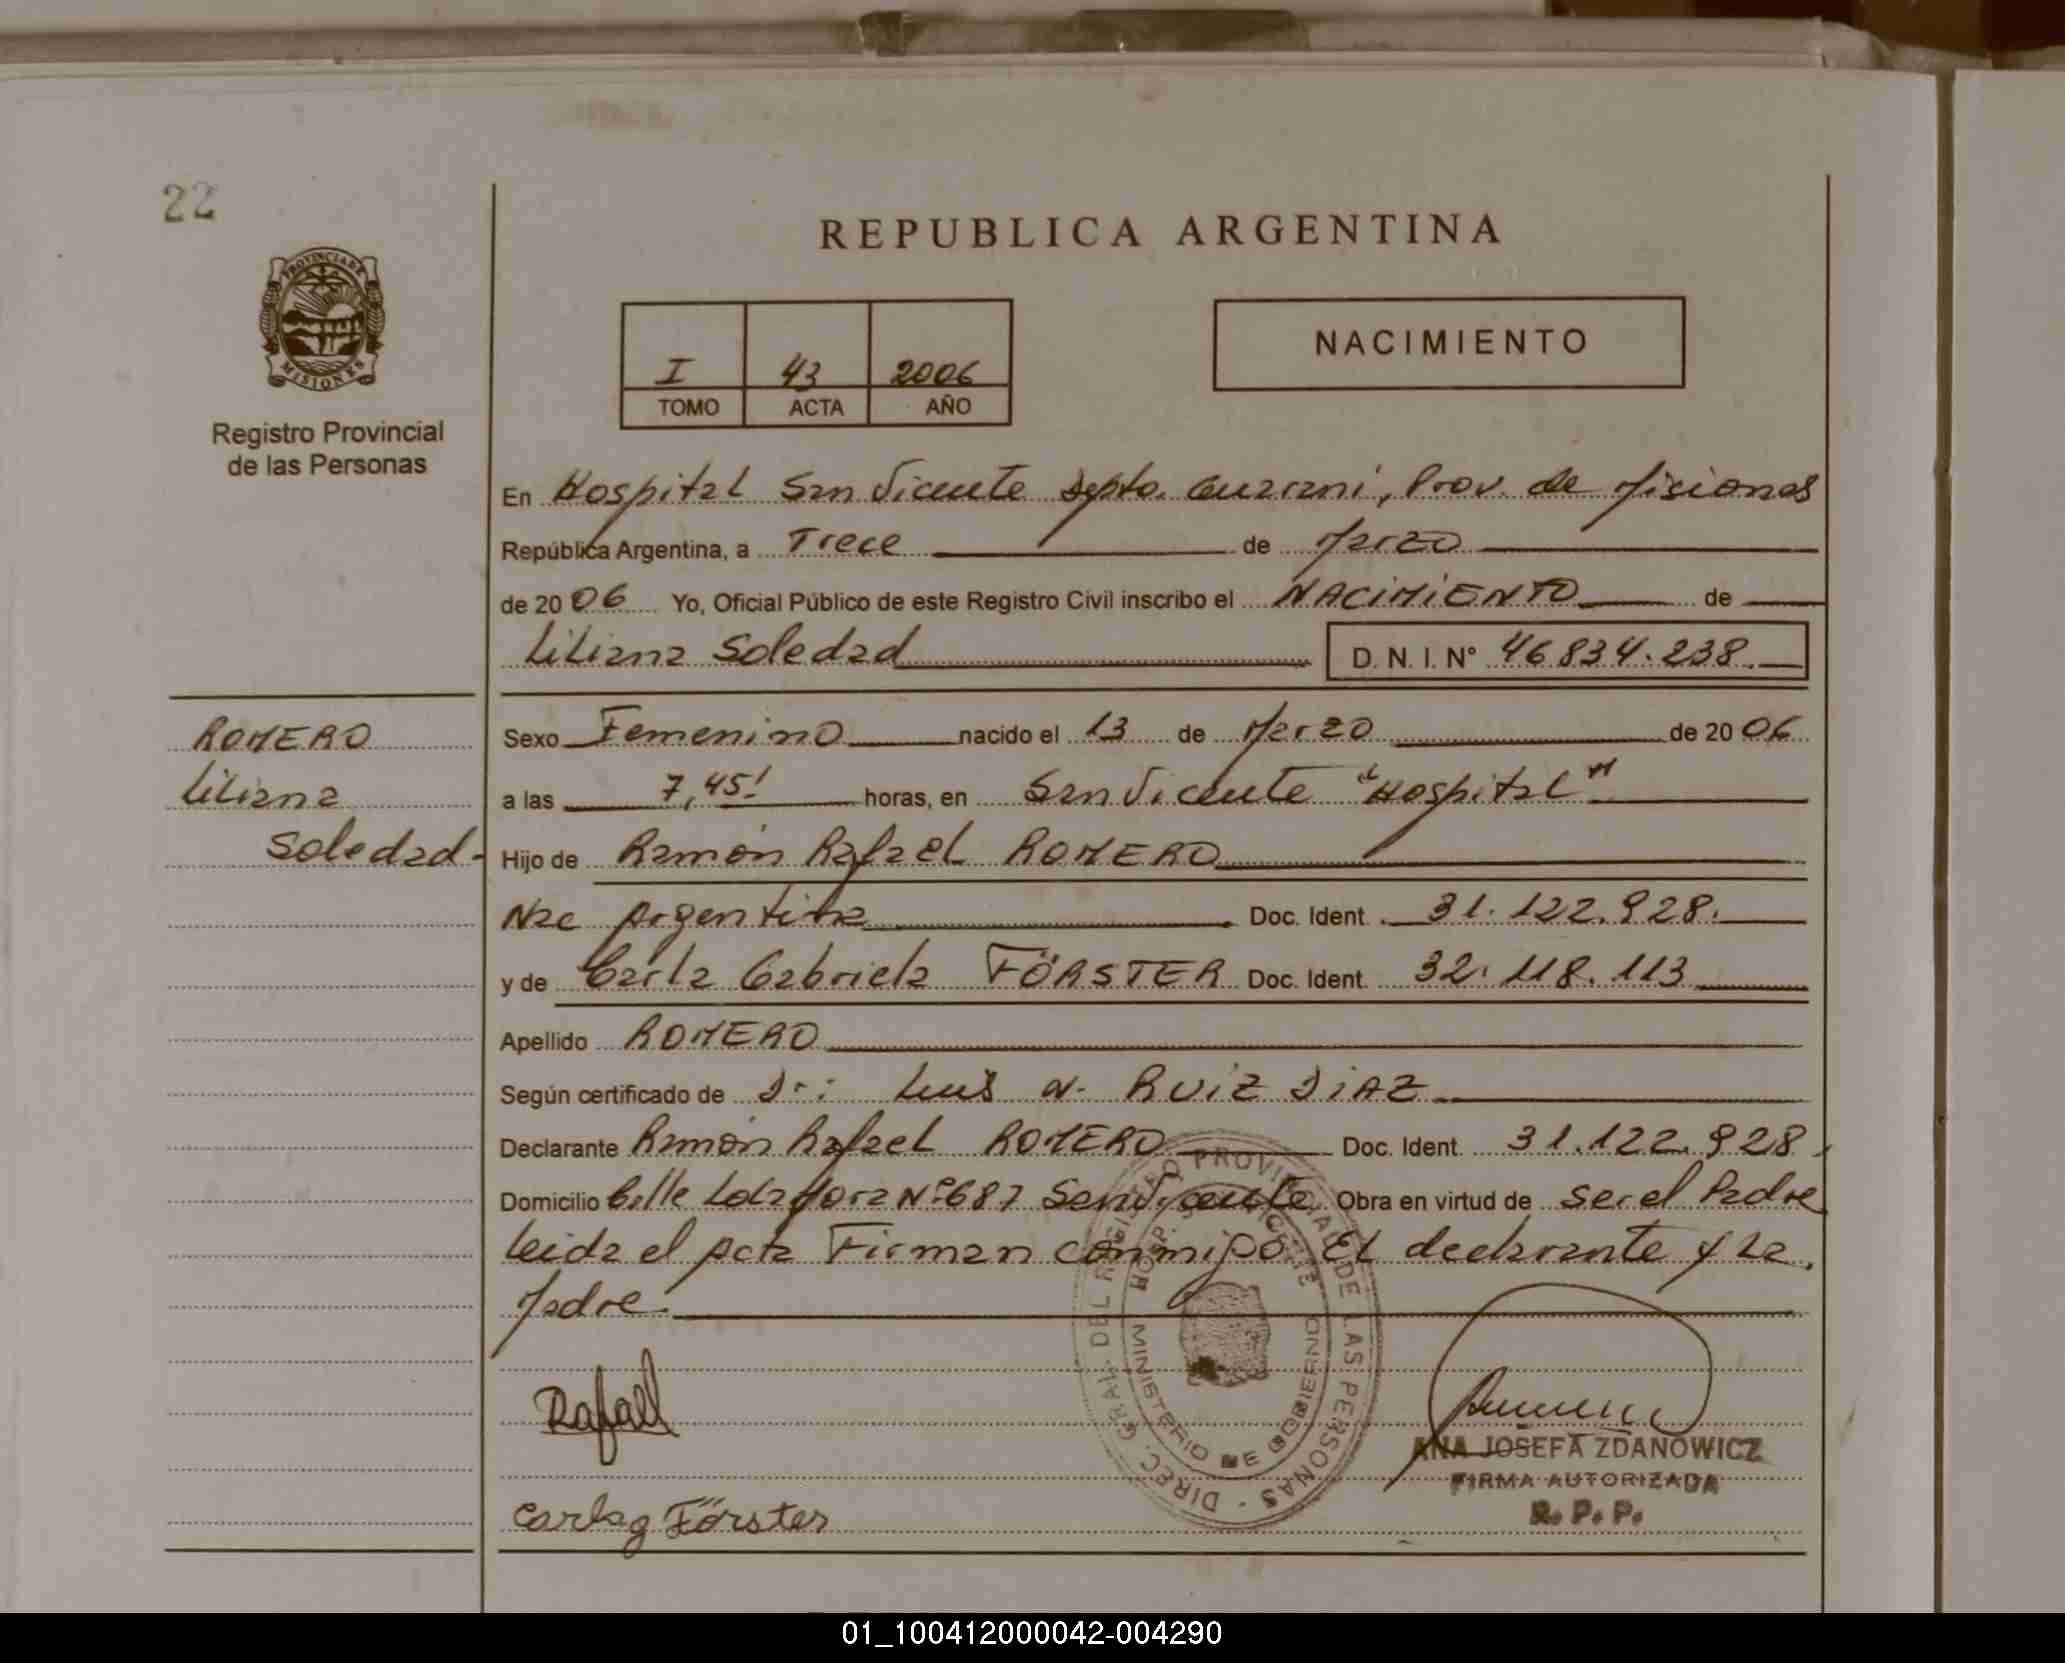 22
REPUBLICA ARGENTINA
PROVINCIA DE
MISIONES
Registro Provincial
de las Personas
I 43 2006
TOMO ACTA AÑO
NACIMIENTO
En Hospital San Vicente Dpto. Guarani, Prov. de Misiones
República Argentina, a Trece de Marzo
de 2006 Yo, Oficial Público de este Registro Civil inscribo el NACIMIENTO de
Liliana Soledad D. N. I. N° 46834.238.
ROMERO
Liliana
Soledad-
Sexo Femenino nacido el 13 de Marzo de 2006
a las 7,45' horas, en San Vicente "Hospital"
Hijo de Ramón Rafael ROMERO
Nac Argentina Doc. Ident. 31.122.928.
y de Carla Gabriela FÖRSTER Doc. Ident. 32.118.113
Apellido ROMERO
Según certificado de Dr: Luis A. RUIZ DIAZ
Declarante Ramón Rafael ROMERO Doc. Ident. 31.122.928,
Domicilio Calle Lola Mora N°687 San Vicente Obra en virtud de ser el Padre
Leida el Acta Firman conmigo El declarante y La
Madre.
DIREC. GRAL. DEL REGISTRO PROVINCIAL DE LAS PERSONAS
HOSP. S. VICENTE
MINISTERIO DE GOBIERNO
Rafael
ANA JOSEFA ZDANOWICZ
FIRMA AUTORIZADA
R. P. P.
Carla g Förster
01_100412000042-004290